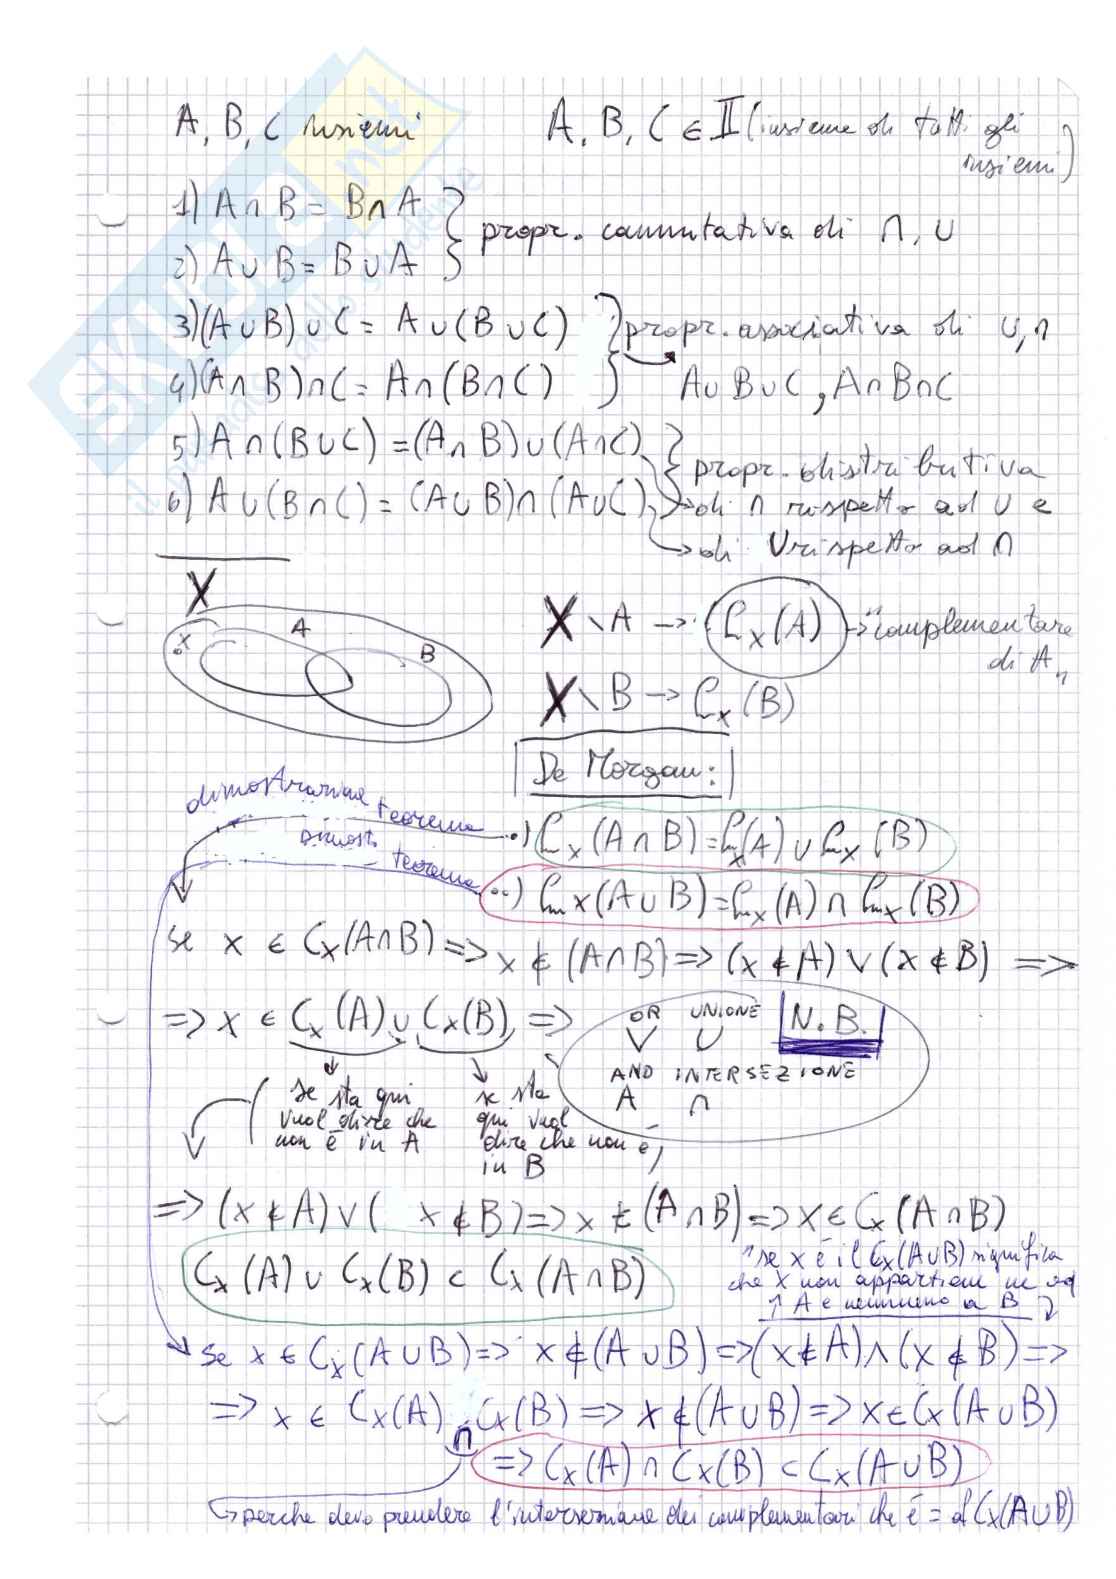 A, B, C insiemi A, B, C ∈ 𝕀 (insieme di tutti gli
insiemi)
1) A ∩ B = B ∩ A
propr. commutativa di ∩, ∪
2) A ∪ B = B ∪ A
3) (A ∪ B) ∪ C = A ∪ (B ∪ C) propr. associativa di ∪, ∩
4) (A ∩ B) ∩ C = A ∩ (B ∩ C) → A ∪ B ∪ C, A ∩ B ∩ C
5) A ∩ (B ∪ C) = (A ∩ B) ∪ (A ∩ C) propr. distributiva
6) A ∪ (B ∩ C) = (A ∪ B) ∩ (A ∪ C) → di ∩ rispetto ad ∪ e
→ di ∪ rispetto ad ∩
X
x A B
X \ A → C_X(A) → "complementare
di A"
X \ B → C_X(B)
De Morgan:
dimostrazione teorema
.) C_X(A ∩ B) = C_X(A) ∪ C_X(B)
Dimost. teorema
..) C_X(A ∪ B) = C_X(A) ∩ C_X(B)
se x ∈ C_X(A ∩ B) => x ∉ (A ∩ B) => (x ∉ A) ∨ (x ∉ B) =>
=> x ∈ C_X(A) ∪ C_X(B) =>
OR UNIONE N.B.
∨ ∪
AND INTERSEZIONE
∧ ∩
se sta qui
vuol dire che
non è in A
se sta
qui vuol
dire che non è
in B
=> (x ∉ A) ∨ (x ∉ B) => x ∉ (A ∩ B) => x ∈ C_X(A ∩ B)
C_X(A) ∪ C_X(B) ⊂ C_X(A ∩ B)
"se x è il C_X(A ∪ B) significa
che x non appartiene ne ad
A e nemmeno a B
se x ∈ C_X(A ∪ B) => x ∉ (A ∪ B) => (x ∉ A) ∧ (x ∉ B) =>
=> x ∈ C_X(A) ∩ C_X(B) => x ∉ (A ∪ B) => x ∈ C_X(A ∪ B)
=> C_X(A) ∩ C_X(B) ⊂ C_X(A ∪ B)
→ perche devo prendere l'intersezione dei complementari che è = al C_X(A ∪ B)
SKUOLA.net
il paradiso dello studente